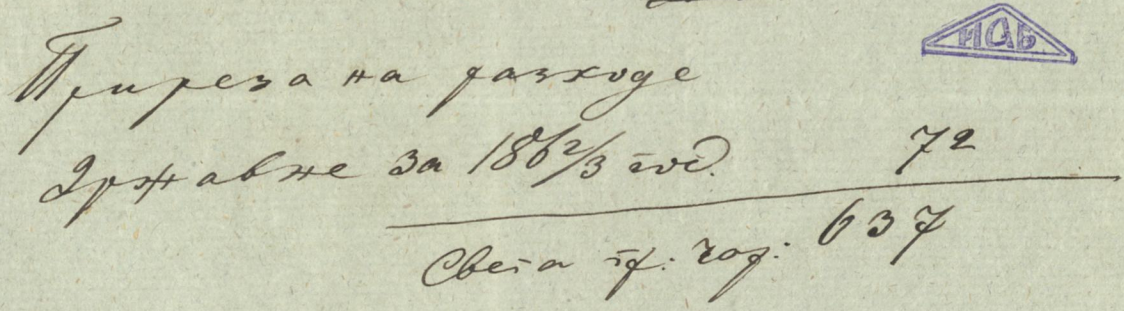 ИАБ
Приреза на разходе
Државне за 186 2/3 год. 72
Свега гр: чар: 637